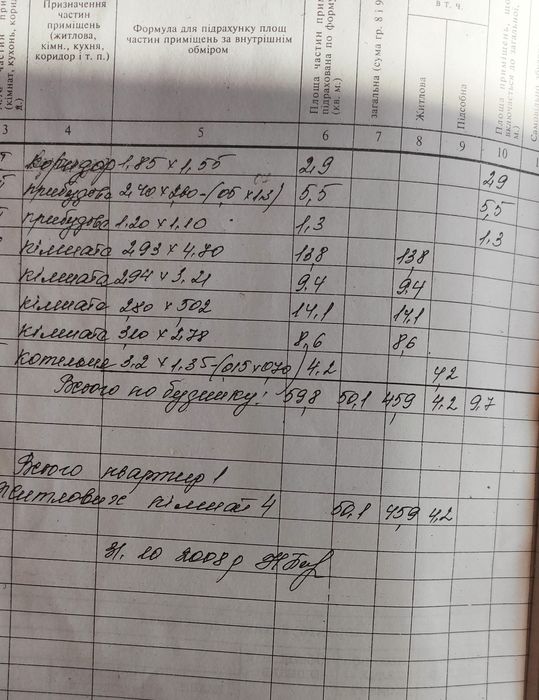 Призначення
частин
приміщень
(житлова,
кімн., кухня,
коридор і т. п.)
Формула для підрахунку площ
частин приміщень за внутрішнім
обміром
Площа частин
підрахована по
(кв. м.)
загальна (сума гр. 8 і 9
в т. ч.
Житлова
Підсобна
3 4 5 6 7 8 9 10
коридор 1,85 х 1,55 2,9 2,9
прибудова 2,40 х 2,80-(05 х 1,3) 5,5 5,5
прибудова 1,20 х 1,10 1,3 1,3
кімната 2,93 х 4,70 13,8 13,8
кімната 2,94 х 3,21 9,4 9,4
кімната 2,80 х 5,02 14,1 14,1
кімната 3,10 х 2,78 8,6 8,6
котельня 3,2 х 1,35-(0,15х0,70) 4,2 4,2
Всього по будинку: 59,8 50,1 45,9 4,2 9,7
Всього квартир 1
житлових кімнат 4 50,1 45,9 4,2
31. 10 2008р